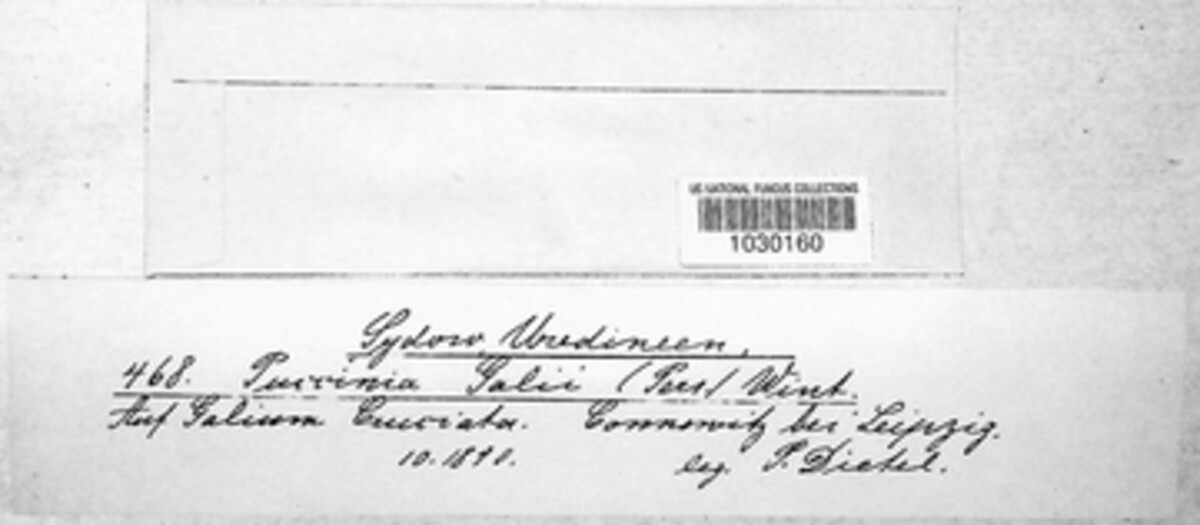 US NATIONAL FUNGUS COLLECTIONS
1030160
Sydow, Uredineen.
468. Puccinia Galii (Pers) Wint.
Auf Galium Cruciata. Connewitz bei Leipzig.
10. 1890. leg. P. Dietel.